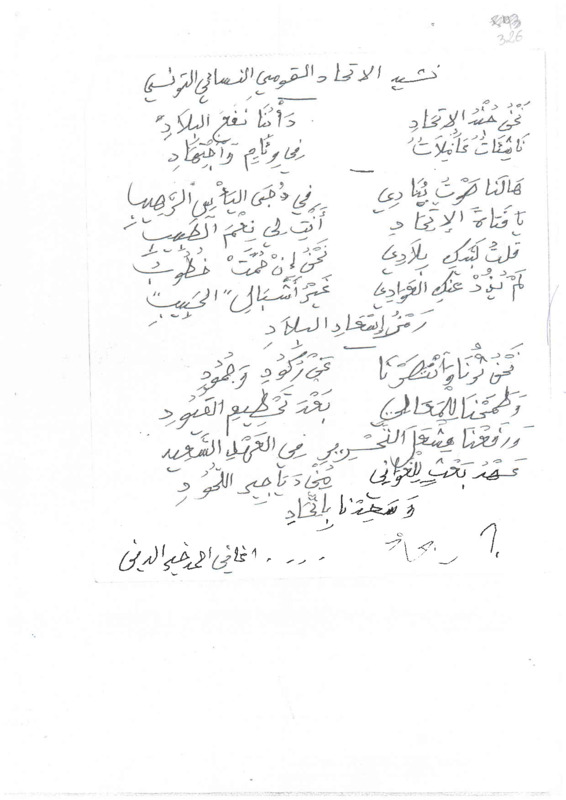 326
نشيد الاتحاد القومي النسائي التونسي
نَحْنُ جُنْدُ الاِتِّحَادِ دَأْبُنَا نَفْعُ البِلَادِ
نَاشِئَاتٌ عَامِلَاتٌ فِي وِئَامٍ وَاجْتِهَادِ
هَالَنَا صَوْتٌ يُنَادِي فِي دُجَى اليَأْسِ الرَّهِيبِ
يَا فَتَاةَ الاِتِّحَادِ أَنْتِ لِي نِعْمَ الطَّبِيبِ
قلتُ لَبَّيْكِ بِلَادِي نَحْنُ إِنْ حُمَّتْ خُطُوبُ
لَمْ يَذُدْ عَنْكِ العَوَادِي غَيْرُ أَشْبَالِ "الحَبِيبِ"
رَمْزُ إِسْعَادِ البِلَادِ
نَحْنُ ثُرْنَا وَانْتَصَرْنَا عَنْ رُكُودٍ وَجُمُودِ
وَطَمَحْنَا لِلْمَعَالِي بَعْدَ تَحْطِيمِ القُيُودِ
وَرَفَعْنَا مِشْعَلَ التَّحْرِيرِ فِي العَهْدِ السَّعِيدِ
عَهْدُ بَعْثٍ لِلْغَوَانِي مِنْ دَيَاجِيرِ اللُّحُودِ
وَسَعِدْنَا بِاتِّحَادِ
. . . . احمد خير الدين